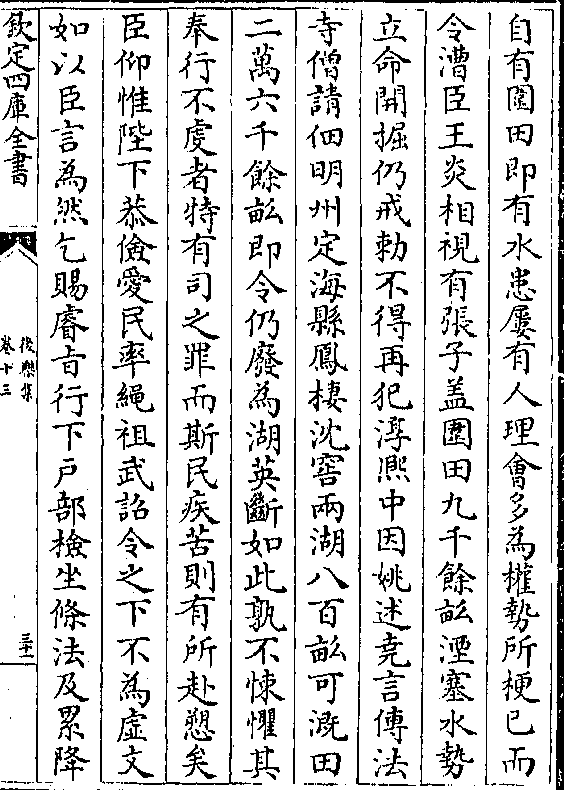 自有圍田即有水患屢有人理會多為權勢所梗已而
令漕臣王炎相視有張子盖圍田九千餘畝湮塞水勢
立命開掘仍戒勅不得再犯淳熙中因姚述堯言傳法
寺僧請佃明州定海縣鳳棲沈窖兩湖八百畝可溉田
二萬六千餘畝即令仍廢為湖英斷如此孰不悚懼其
奉行不虔者特有司之罪而斯民疾苦則有所赴愬矣
臣仰惟陛下恭儉愛民率繩祖武詔令之下不為虛文
如以臣言為然乞賜睿旨行下戶部檢坐條法及累降
欽定四庫全書
後樂集
卷十三
三十一